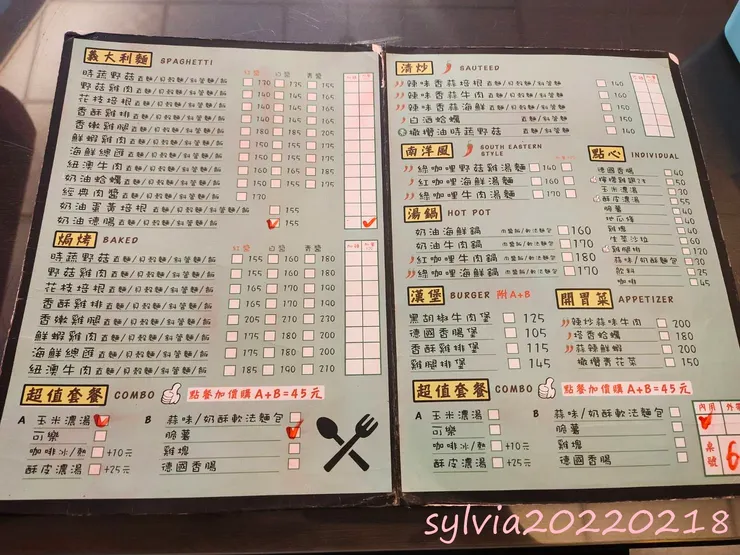 義大利麵 SPAGHETTI
紅醬 白醬 青醬
時蔬野菇 直麵/貝殼麵/斜管麵/飯 130 125 155
野菇雞肉 直麵/貝殼麵/斜管麵/飯 140 145 165
花枝培根 直麵/貝殼麵/斜管麵/飯 140 145 165
香酥雞排 直麵/貝殼麵/斜管麵/飯 140 145 165
香嫩雞腿 直麵/貝殼麵/斜管麵/飯 180 185 205
鮮蝦雞肉 直麵/貝殼麵/斜管麵/飯 150 155 175
海鮮總匯 直麵/貝殼麵/斜管麵/飯 150 155 175
紐澳牛肉 直麵/貝殼麵/斜管麵/飯 160 165 185
奶油蛤蠣 直麵/貝殼麵/斜管麵/飯 150 155 175
經典肉醬 直麵/貝殼麵/斜管麵/飯 170
奶油薰黃培根 直麵/貝殼麵/斜管麵/飯 155
奶油德腸 直麵/貝殼麵/斜管麵/飯 155
焗烤 BAKED
紅醬 白醬 青醬
時蔬野菇 直麵/貝殼麵/斜管麵/飯 155 160 180
野菇雞肉 直麵/貝殼麵/斜管麵/飯 165 170 190
花枝培根 直麵/貝殼麵/斜管麵/飯 165 170 190
香酥雞排 直麵/貝殼麵/斜管麵/飯 165 170 190
香嫩雞腿 直麵/貝殼麵/斜管麵/飯 205 210 230
鮮蝦雞肉 直麵/貝殼麵/斜管麵/飯 175 180 200
海鮮總匯 直麵/貝殼麵/斜管麵/飯 175 180 200
紐澳牛肉 直麵/貝殼麵/斜管麵/飯 185 190 210
超值套餐 COMBO 點餐加價購 A+B=45元
A 玉米濃湯
可樂
咖啡 冰/熱 +10元
酥皮濃湯 +25元
B 蒜味/奶酥軟法麵包
脆薯
雞塊
德國香腸
清炒 SAUTEED
辣味香蒜培根 直麵/貝殼麵/斜管麵/飯 140
辣味香蒜牛肉 直麵/貝殼麵/斜管麵/飯 160
辣味香蒜海鮮 直麵/貝殼麵/斜管麵/飯 150
白酒蛤蠣 直麵/斜管麵 150
橄欖油時蔬野菇 直麵/斜管麵 140
南洋風 SOUTH EASTERN STYLE
綠咖哩野菇雞湯麵 140
紅咖哩海鮮湯麵 160
綠咖哩海鮮湯麵 160
湯鍋 HOT POT
奶油海鮮鍋 160
奶油牛肉鍋 170
紅咖哩牛肉鍋 180
綠咖哩海鮮鍋 170
漢堡 BURGER 附A+B
黑胡椒牛肉堡 125
德國香腸堡 105
香酥雞排堡 115
雞腿排堡 145
點心 INDIVIDUAL
德國香腸 40
檸檬雞翅2入 50
玉米濃湯 30
酥皮濃湯 55
脆薯 40
地瓜條 40
雞塊 40
生菜沙拉 60
雞腿排 120
蒜味/奶酥麵包 30
飲料 25
咖啡 45
開胃菜 APPETIZER
辣炒蒜味牛肉 200
塔香蛤蠣 180
蒜辣鮮蝦 200
橄欖青花菜 150
超值套餐 COMBO 點餐加價購 A+B=45元
A 玉米濃湯
可樂
咖啡 冰/熱 +10元
酥皮濃湯 +25元
B 蒜味/奶酥軟法麵包
脆薯
雞塊
德國香腸
內用 外帶
桌號 6
sylvia20220218